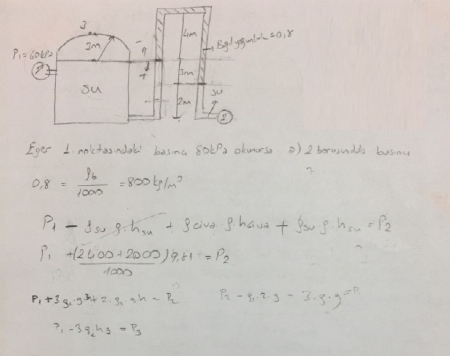 3
P₁ = 60kPa
2m
su
-
+
4m
3m
2m
Bağıl yoğunluk = 0,8
su
2
Eğer 1 noktasındaki basınç 80kPa okunursa a) 2 borusunda basıncı
?
0,8 = ρb / 1000 = 800 kg/m³
P₁ - ρsu g.hsu + ρciva g hciva + ρsu g.hsu = P₂
P₁ + (2400 + 2000) 9,81 / 1000 = P₂
P₂
P₁ - 3ρ₂ h g = P₃